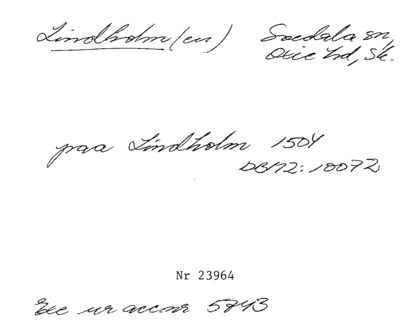 Lindholm (en) Svedala sn,
Oxie hd, Sk.
paa Lindholm 1504
DC/72: 10072
Nr 23964
Exc ur accnr 5843